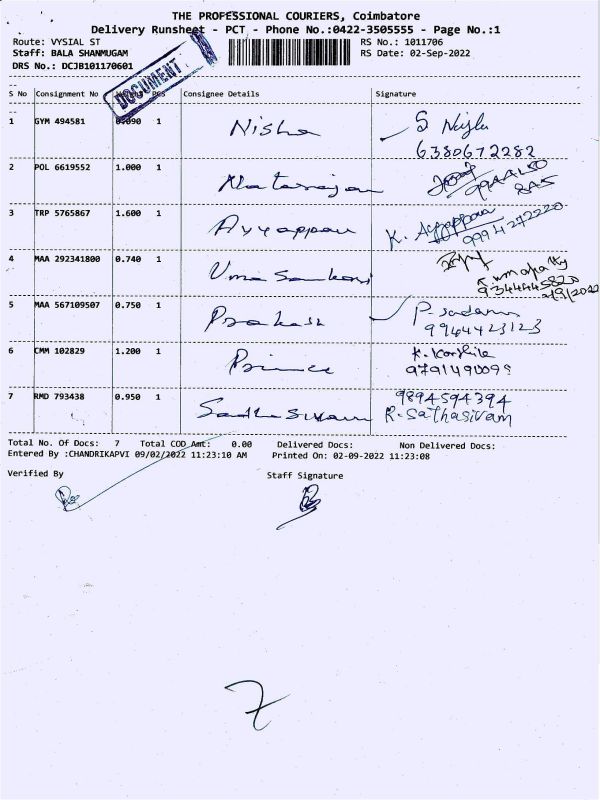 THE PROFESSIONAL COURIERS, Coimbatore
Delivery Runsheet - PCT - Phone No.:0422-3505555 - Page No.:1
Route: VYSIAL ST RS No.: 1011706
Staff: BALA SHANMUGAM RS Date: 02-Sep-2022
DRS No.: DCJB101170601
DOCUMENT
S No Consignment No PCS Consignee Details Signature
1 GYM 494581 0.090 1 Nisha S
6380672282
2 POL 6619552 1.000 1 Natarajan
3 TRP 5765867 1.600 1 Ayyappan K. Ayyappan
9994272220
4 MAA 292341800 0.740 1 Uma
2/9/2022
5 MAA 567109507 0.750 1 Prakash P.
9964423123
6 CMM 102829 1.200 1 Prince K.
7 RMD 793438 0.950 1 Sadha Sivam 9894594394
R. Sathasivam
Total No. Of Docs: 7 Total COD Amt: 0.00 Delivered Docs: Non Delivered Docs:
Entered By :CHANDRIKAPVI 09/02/2022 11:23:10 AM Printed On: 02-09-2022 11:23:08
Verified By Staff Signature
7